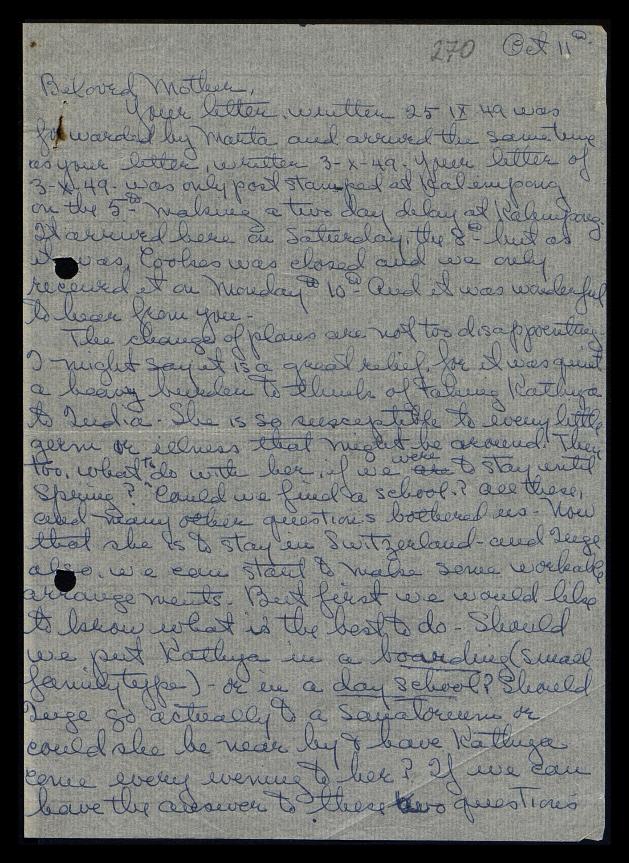 270 Oct 11th.
Beloved Mother,
Your letter, written 25 IX 49 was
forwarded by Marta and arrived the same time
as your letter, written 3-X-49. Your letter of
3-X-49. was only post stamped at Kalempong
on the 5th making a two day delay at Kalempong.
It arrived here on Saturday, the 8th but as
it was, Cookes was closed and we only
received it on Monday th 10th - And it was wonderful
to hear from you -
The change of plans are not too disappointing -
I might say it is a great relief, for it was quite
a heavy burden to think of taking Kathya
to India. She is so susceptible to every little
germ or illness that might be around. Then
too, what to do with her, if we were to stay until
Spring? Could we find a school? All these,
and many other questions bothered us - Now
that she is to stay in Switzerland - and Inge
also, we can start to make some workable
arrangements. But first we would like
to know what is the best to do - Should
we put Kathya in a boarding (small
family type) - or in a day school? Should
Inge go actually to a Sanatoreum or
could she be near by & have Kathya
come every evening to her? If we can
have the answer to these two questions